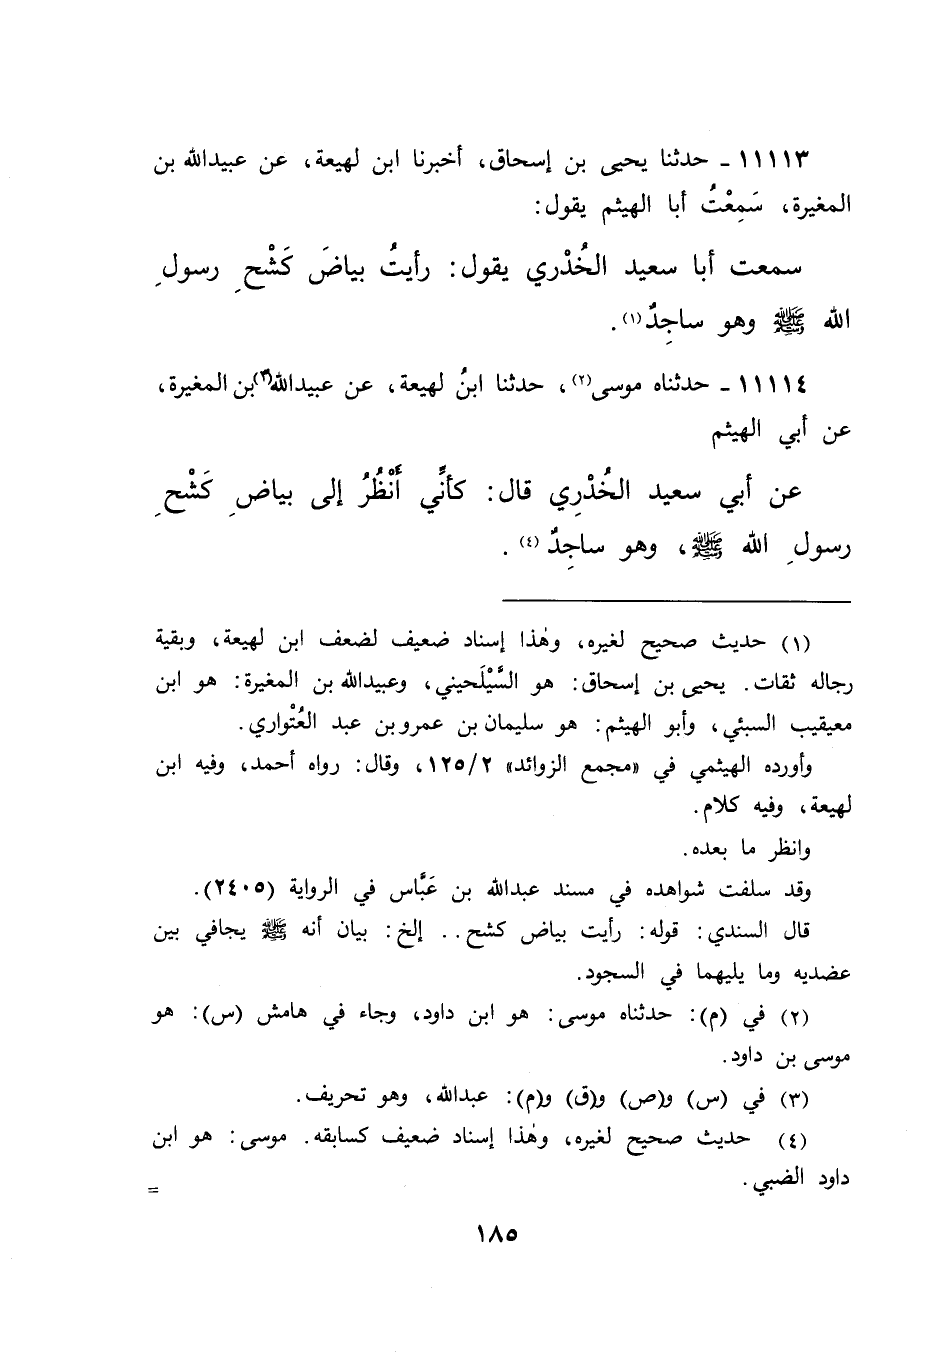 ١١١١٣ ـ حدثنا يحيى بن إسحاق، أخبرنا ابن لهيعة، عن عبيدالله بن
المغيرة، سَمِعْتُ أبا الهيثم يقول:
سمعت أبا سعيد الخُدْري يقول: رأيتُ بياضَ كَشْحِ رسولِ
الله ﷺ وهو ساجِدٌ(١).
١١١١٤ ـ حدثناه موسى(٢)، حدثنا ابنُ لهيعة، عن عبيدالله(٣)بن المغيرة،
عن أبي الهيثم
عن أبي سعيد الخُدْرِي قال: كأنِّي أَنْظُرُ إلى بياضِ كَشْحِ
رسولِ الله ﷺ، وهو ساجِدٌ(٤).
(١) حديث صحيح لغيره، وهٰذا إسناد ضعيف لضعف ابن لهيعة، وبقية
رجاله ثقات. يحيى بن إسحاق: هو السَّيْلَحيني، وعبيدالله بن المغيرة: هو ابن
معيقيب السبئي، وأبو الهيثم: هو سليمان بن عمرو بن عبد العُتْواري.
وأورده الهيثمي في «مجمع الزوائد» ١٢٥/٢، وقال: رواه أحمد، وفيه ابن
لهيعة، وفيه كلام.
وانظر ما بعده.
وقد سلفت شواهده في مسند عبدالله بن عَبَّاس في الرواية (٢٤٠٥).
قال السندي: قوله: رأيت بياض كشح.. إلخ: بيان أنه ﷺ يجافي بين
عضديه وما يليهما في السجود.
(٢) في (م): حدثناه موسى: هو ابن داود، وجاء في هامش (س): هو
موسى بن داود.
(٣) في (س) و(ص) و(ق) و(م): عبدالله، وهو تحريف.
(٤) حديث صحيح لغيره، وهٰذا إسناد ضعيف كسابقه. موسى: هو ابن
داود الضبي.
=
١٨٥